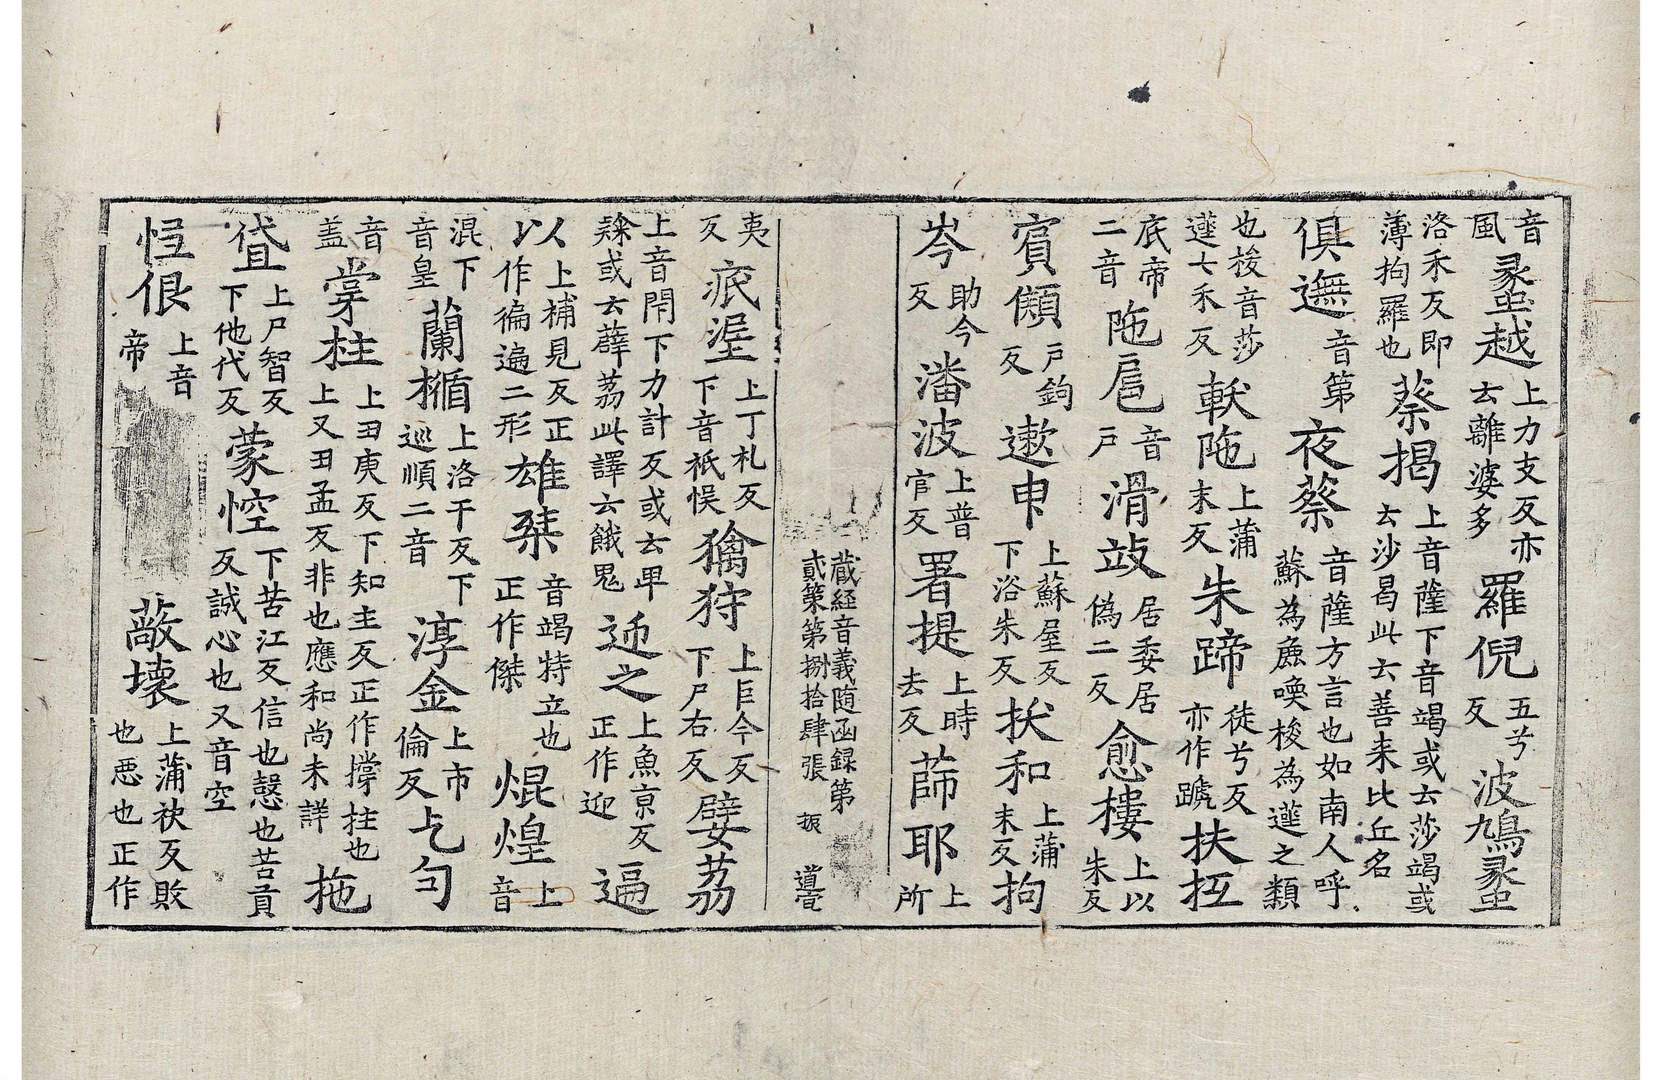 音風𧔞越上力支反亦云離婆多羅倪五兮反波鳩𧔞
洛禾反即薄拘羅也蔡揭上音薩下音竭或云莎竭或云沙曷此云善来比丘名
俱𨗜音第夜蔡音薩方言也如南人呼蘇為麁喚梭為蓬之類
也梭音莎蓬七禾反軑陁上蒲末反朱蹄徒兮反亦作蹏扶㧓
底帝二音陁扈音戶滑攱居委居偽二反愈樓上以朱反
賔㒑戸鉤反遬申上蘇屋反下浴朱反扙和上蒲末反拘
岑助今反潘波上普官反署提上時去反蒒耶上所
藏経音義随函録第貳第第捌拾肆張 振 道𡧛
夷反疧渥上丁礼反下音祇悮㺍狩上巨今反下尸右反嬖茘
上音閇下力計反或云早𥻦或云薜茘此譯云餓鬼迊之上魚京反正作迎逼
以上補見反正作徧遍二形雄桀音竭特立也正作傑焜煌上音
混下音皇蘭楯上洛干反下巡順二音淳金上市倫反乞匄
音盖掌柱上丑庚反下知主反正作撐拄也上又丑孟反非也應和尚未詳拖
貸上尸智反下他代反蒙悾下苦江反信也慤也苦貢反誠心也又音空
恠佷上音帝 㪣壊上蒲袂反敗也悪也正作